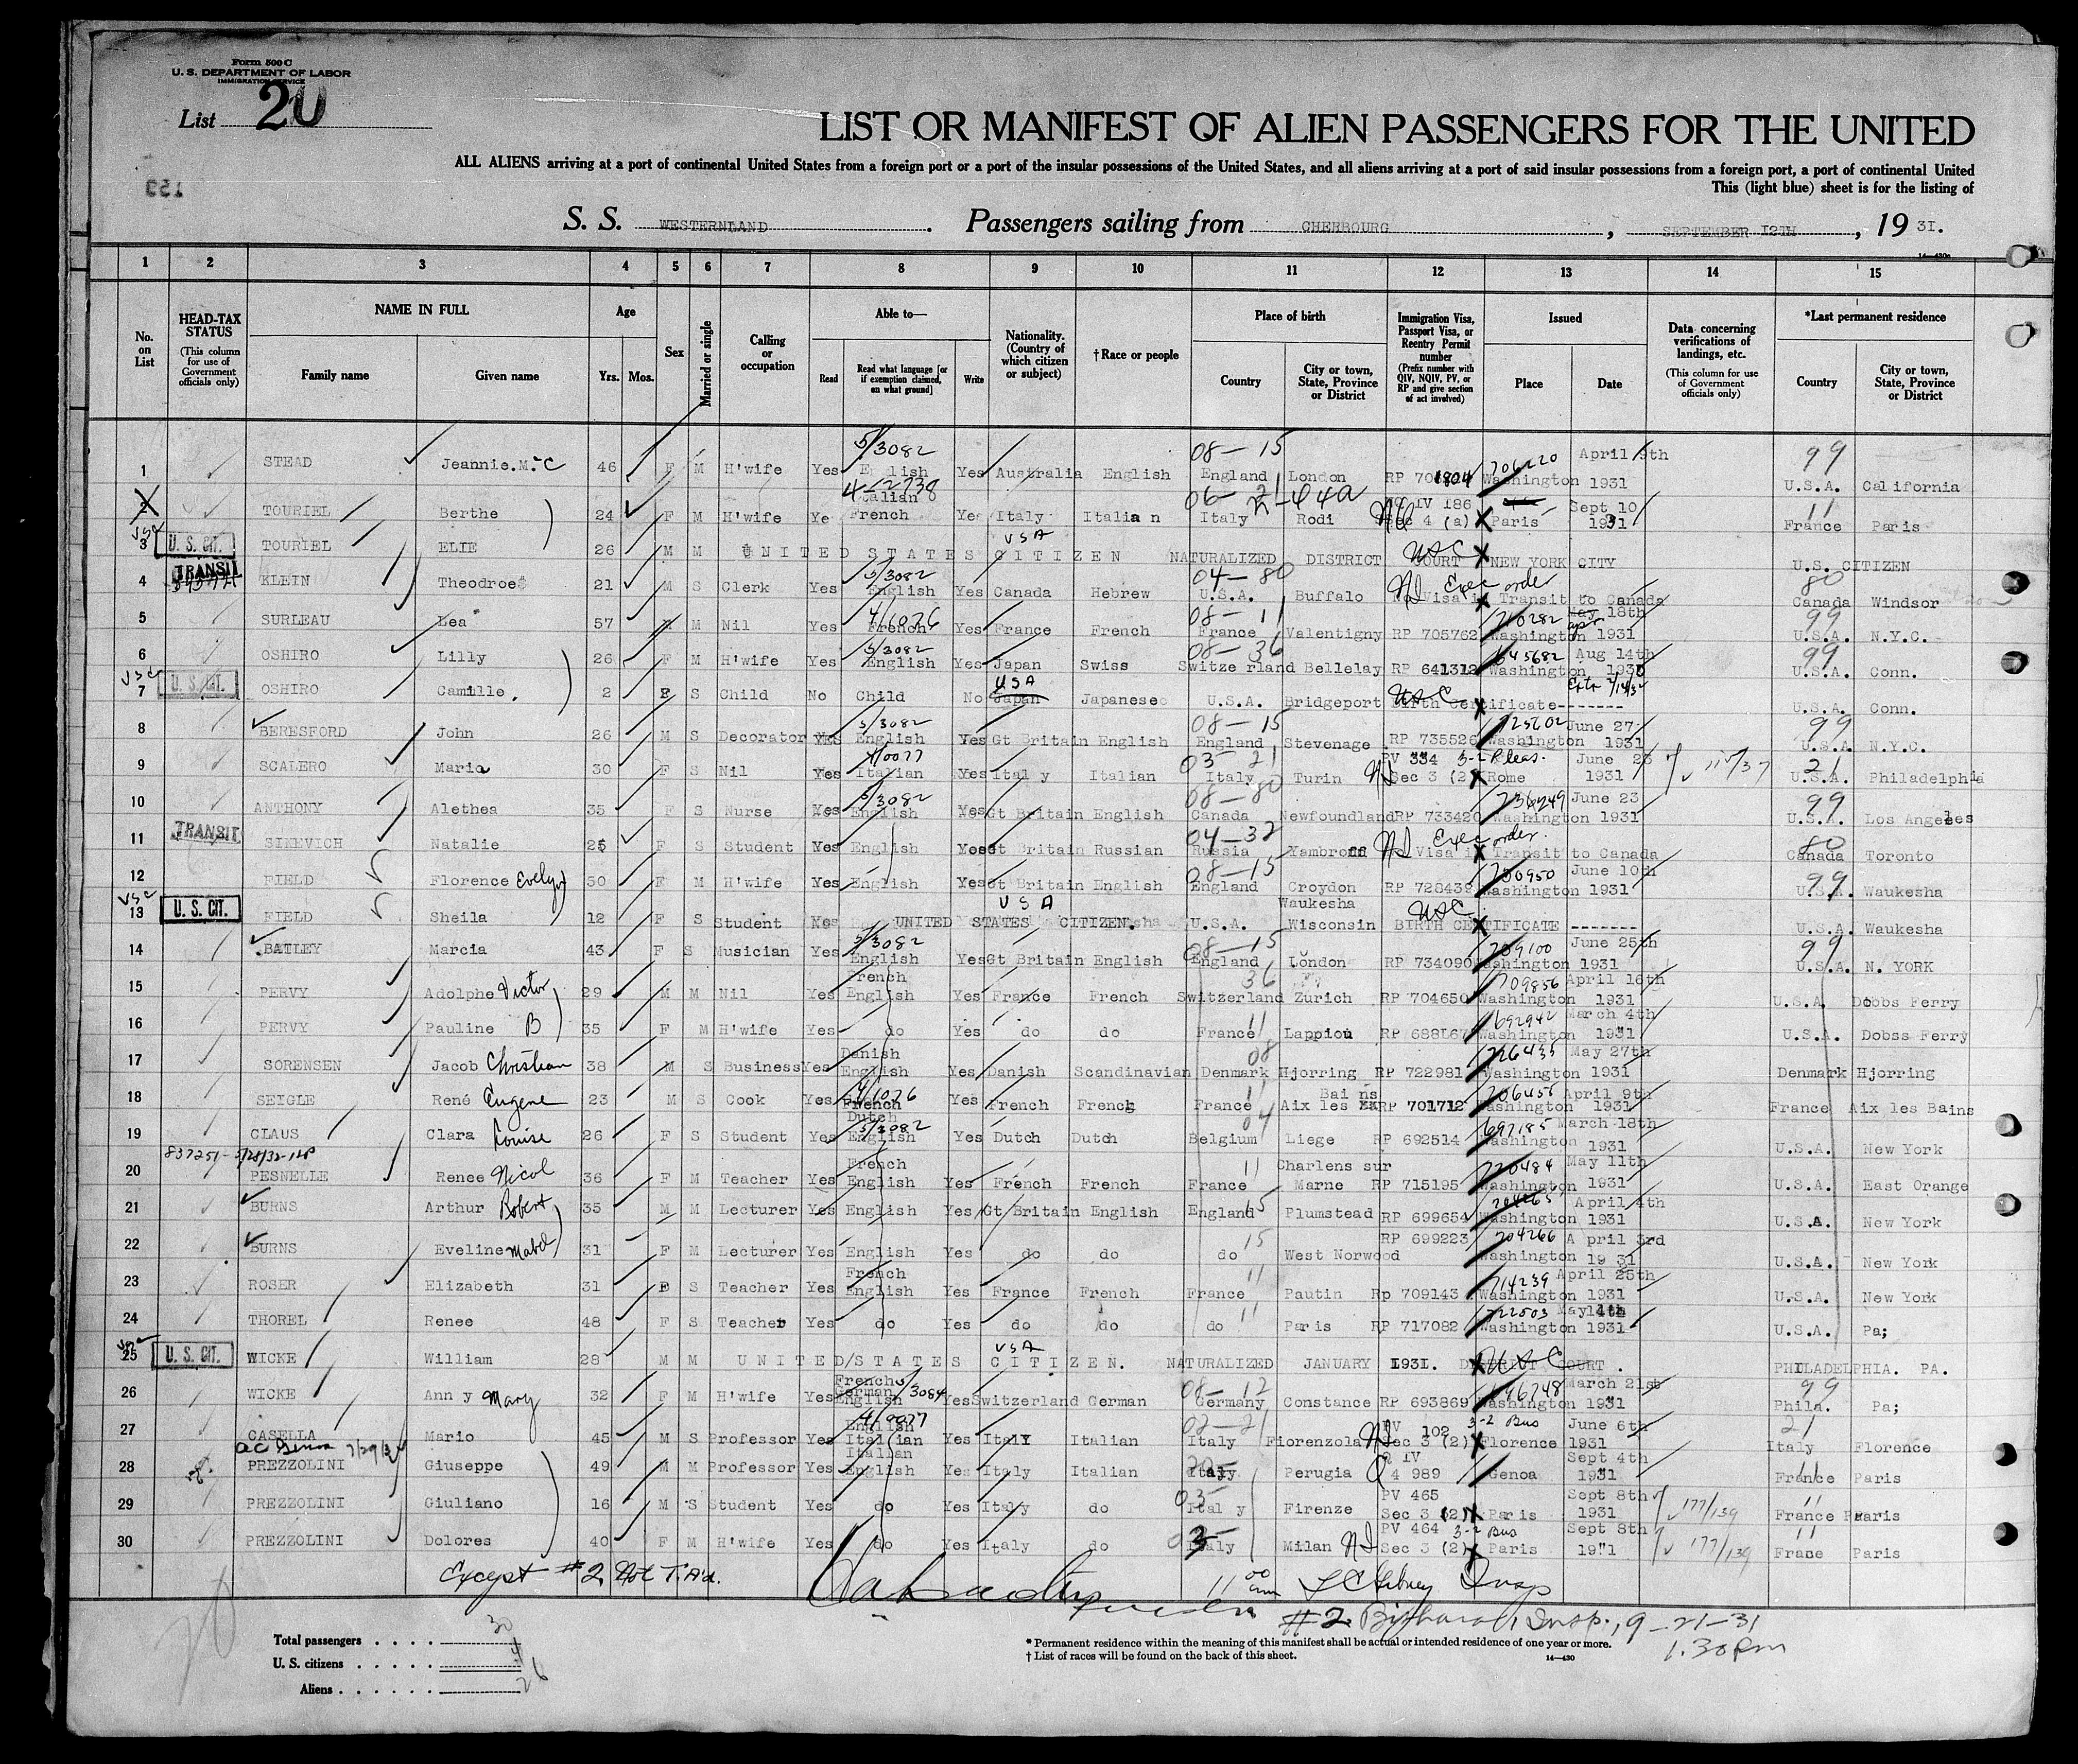 Form 500 C
U. S. DEPARTMENT OF LABOR
IMMIGRATION SERVICE
List 20
LIST OR MANIFEST OF ALIEN PASSENGERS FOR THE UNITED
ALL ALIENS arriving at a port of continental United States from a foreign port or a port of the insular possessions of the United States, and all aliens arriving at a port of said insular possessions from a foreign port, a port of continental United
This (light blue) sheet is for the listing of
S. S. WESTERNLAND. Passengers sailing from CHERBOURG, SEPTEMBER I2TH, 19 3I.
14—430a
1 2 3 4 5 6 7 8 9 10 11 12 13 14 15
No. on List
HEAD-TAX STATUS (This column for use of Government officials only)
NAME IN FULL Family name Given name
Age Yrs. Mos.
Sex
Married or single
Calling or occupation
Able to— Read Read what language [or if exemption claimed, on what ground] Write
Nationality. (Country of which citizen or subject)
†Race or people
Place of birth Country City or town, State, Province or District
Immigration Visa, Passport Visa, or Reentry Permit number (Prefix number with QIV, NQIV, PV, or RP and give section of act involved)
Issued Place Date
Data concerning verifications of landings, etc. (This column for use of Government officials only)
*Last permanent residence Country City or town, State, Province or District
5/3082 08—15 706220 April 9th 99
1 STEAD Jeannie.Mc C 46 F M H'wife Yes English Yes Australia English England London RP 701804 Washington 1931 U.S.A. California
4-12738 Italian IV 186 Sept 10 11
2 TOURIEL Berthe 24 F M H'wife Ye French Yes Italy Italian Italy Rodi Sec 4 (a) Paris 1931 France Paris
USC USA
3 U. S. CIT. TOURIEL ELIE 26 M M UNITED STATES CITIZEN NATURALIZED DISTRICT COURT NEW YORK CITY U.S. CITIZEN
TRANSIT 5/3082 04—80 Exec order 80
4 KLEIN Theodroe 21 M S Clerk Yes English Yes Canada Hebrew U.S.A. Buffalo No Visa in Transit to Canada Canada Windsor
4/1026 08—11 710282 May 18th 99
5 SURLEAU Lea 57 M Nil Yes French Yes France French France Valentigny RP 705762 Washington 1931 U.S.A. N.Y.C.
5/3082 08—36 645682 Aug 14th 99
6 OSHIRO Lilly 26 F M H'wife Yes English Yes Japan Swiss Switzerland Bellelay RP 641312 Washington 1930 U.S.A. Conn.
USC USA USC
7 U. S. CIT. OSHIRO Camille. 2 F S Child No Child No Japan Japanese U.S.A. Bridgeport Birth Certificate------- U.S.A. Conn.
5/3082 08—15 725602 June 27 99
8 BERESFORD John 26 M S Decorator Yes English Yes Gt Britain English England Stevenage RP 735526 Washington 1931 U.S.A N.Y.C.
4/0077 03—21 PV 334 3-2 Pleas. June 23 21
9 SCALERO Maria 30 F S Nil Yes Italian Yes Italy Italian Italy Turin Sec 3 (2) Rome 1931 U.S.A. Philadelphia
5/3082 08—80 736249 June 23 99
10 ANTHONY Alethea 35 F S Nurse Yes English Yes Gt Britain English Canada Newfoundland RP 733420 Washington 1931 U.S.A. Los Angeles
TRANSIT 04—32 Exec order. 80
11 SINEVICH Natalie 25 F S Student Yes English Yes Gt Britain Russian Russia No Visa in Transit to Canada Canada Toronto
08—15 730950 June 10th 99
12 FIELD Florence Evelyn 50 F M H'wife Yes English Yes Gt Britain English England Croydon RP 728439 Washington 1931 U.S.A. Waukesha
USC USA Waukesha USC
13 U. S. CIT. FIELD Sheila 12 F S Student UNITED STATES CITIZEN. U.S.A. Wisconsin BIRTH CERTIFICATE ------- U.S.A. Waukesha
5/3082 08—15 739100 June 25th 99
14 BAILEY Marcia 43 F S Musician Yes English Yes Gt Britain English England London RP 734090 Washington 1931 U.S.A. N. YORK
French 36 709856 April 16th
15 PERVY Adolphe Victor 29 M M Nil Yes English Yes France French Switzerland Zurich RP 704650 Washington 1931 U.S.A Dobbs Ferry
11 692942 March 4th
16 PERVY Pauline B 35 F M H'wife Yes do Yes do do France Lappion RP 688167 Washington 19"1 U.S.A. Dobss Ferry
Danish 08 726435 May 27th
17 SORENSEN Jacob Christian 38 M S Business Yes English Yes Danish Scandinavian Denmark Hjorring RP 722981 Washington 1931 Denmark Hjorring
4/1026 11 Bains 706455 April 9th
18 SEIGLE René Eugene 23 M S Cook Yes French Yes French French France Aix les RP 701712 Washington 1931 France Aix les Bains
Dutch 5/3082 04 697185 March 18th
19 CLAUS Clara Louise 26 F S Student Yes English Yes Dutch Dutch Belgium Liege RP 692514 Washington 1931 U.S.A. New York
837251- 5/28/32-
French 11 Charlens sur 720484 May 11th
20 PESNELLE Renee Nicol 36 F M Teacher Yes English Yes French French France Marne RP 715195 Washington 1931 U.S.A. East Orange
15 704265 April 4th
21 BURNS Arthur Robert 35 M M Lecturer Yes English Yes Gt Britain English England Plumstead RP 699654 Washington 1931 U.S.A. New York
15 RP 699223 704266 April 3rd
22 BURNS Eveline Mabel 31 F M Lecturer Yes English Yes do do do West Norwood Washington 1931 U.S.A. New York
French 11 714239 April 25th
23 ROSER Elizabeth 31 F S Teacher Yes English Yes France French France Pautin Rp 709143 Washington 1931 U.S.A. New York
11 722503 May 14th
24 THOREL Renee 48 F S Teacher Yes do Yes do do do Paris RP 717082 Washington 1931 U.S.A. Pa;
USC USA USC
25 U. S. CIT. WICKE William 28 M M UNITED STATES CITIZEN. NATURALIZED JANUARY 1931. DISTRICT COURT. PHILADELPHIA. PA.
French German 3084 08—12 696748 March 21st 99
26 WICKE Anny Mary 32 F M H'wife Yes English Yes Switzerland German Germany Constance RP 693869 Washington 19"1 Phila. Pa;
4/0077 English 03—21 PV 102 3-2 Bus June 6th 21
27 CASELLA Mario 45 M S Professor Yes Italian Yes Italy Italian Italy Fiorenzola Sec 3 (2) Florence 1931 Italy Florence
Italian Q IV Sept 4th
28 PREZZOLINI Giuseppe 49 M M Professor Yes English Yes Italy Italian Italy Perugia 4 989 Genoa 19"1 France Paris
03- PV 465 Sept 8th 11
29 PREZZOLINI Giuliano 16 M S Student Yes do Yes Italy do Italy Firenze Sec 3 (2) Paris 1931 177/139 France Paris
03- PV 464 3-2 Bus Sept 8th 11
30 PREZZOLINI Dolores 40 F M H'wife Yes do Yes Italy do Italy Milan Sec 3 (2) Paris 19"1 177/139 France Paris
Except #2 Not T.A'd.
11 00 am
#2 Insp., 9-21-31
1.30 Pm
Total passengers . . . . 30
U. S. citizens . . . . . 4
Aliens . . . . . . 26
* Permanent residence within the meaning of this manifest shall be actual or intended residence of one year or more.
† List of races will be found on the back of this sheet.
14—430